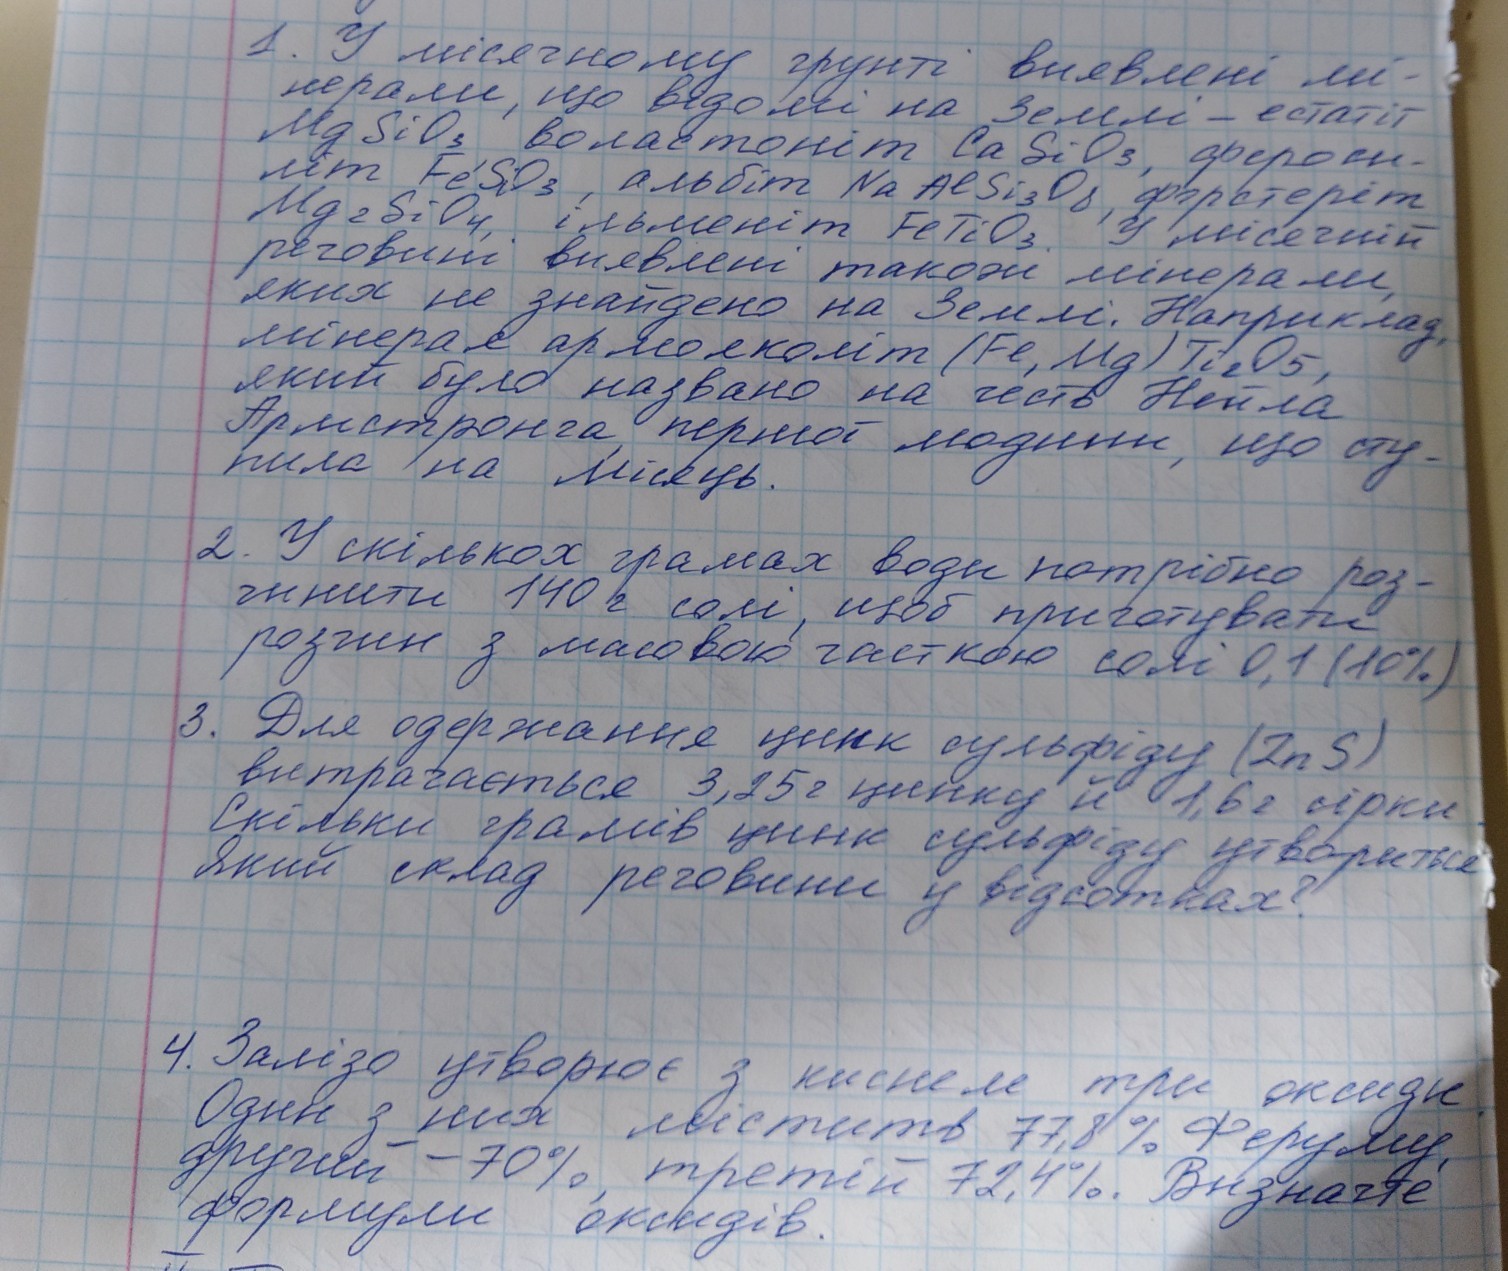 1. У місячному грунті виявлені мі-
нерали, що відомі на Землі - естатіт
MgSiO3 воластоніт CaSiO3, фероси-
літ FeSiO3, альбіт NaAlSi3O8, форстеріт
Mg2SiO4, ільменіт FeTiO3. У місячній
речовині виявлені також мінерали,
яких не знайдено на Землі. Наприклад,
мінерал армолколіт (Fe, Mg)Ti2O5,
який було названо на честь Нейла
Армстронга, першої людини, що сту-
пила на Місяць.
2. У скількох грамах води потрібно роз-
чинити 140 г солі, щоб приготувати
розчин з масовою часткою солі 0,1 (10%)
3. Для одержання цинк сульфіду (ZnS)
витрачається 3,25 г цинку й 1,6 г сірки.
Скільки грамів цинк сульфіду утвориться
Який склад речовини у відсотках?
4. Залізо утворює з киснем три оксиди.
Один з них містить 77,8% Феруму,
другий - 70%, третій 72,4%. Визначте
формули оксидів.